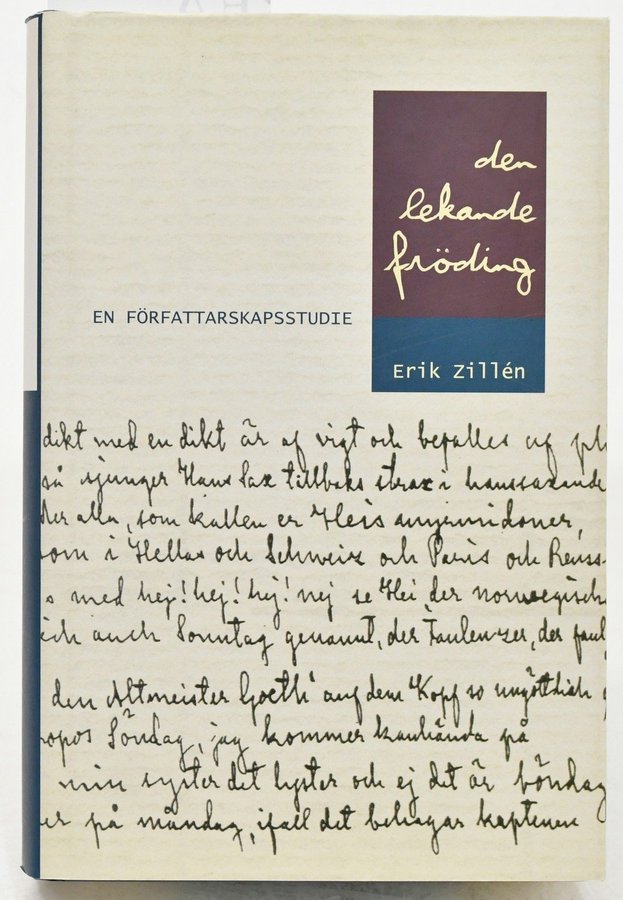 den
lekande
fröding
EN FÖRFATTARSKAPSSTUDIE
Erik Zillén
dikt med en dikt är af vigt och befalles af
så sjunger Hans Sax tillbaks strax i hanssaxande
der alla, som kallen er Heis myrmidoner,
om i Hellas och Schweiz och Paris och Reuss-
s med hej! hej! hej! nej se Hei der norwegisch
ich auch Sonntag genannt, der Faulenzer, der faul
den Altmeister Goeth' auf dem Kopf so ungöttlich
opos Söndag, jag kommer kanhända på
min syster det lyster och ej det är böndag
er på måndag, ifall det behagar kaptenen